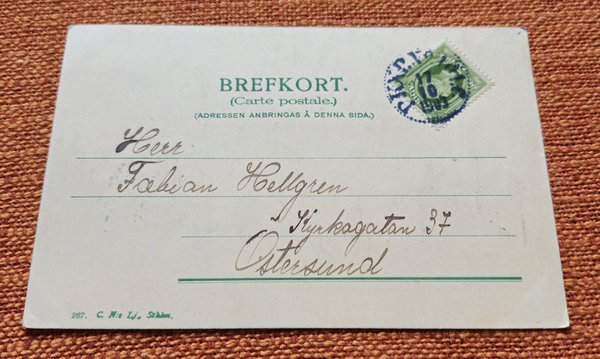 BREFKORT.
(Carte postale.)
(ADRESSEN ANBRINGAS Å DENNA SIDA.)
Herr
Fabian Hellgren
Kyrkogatan 37
Östersund
267. C. N:s Lj., Sthlm.